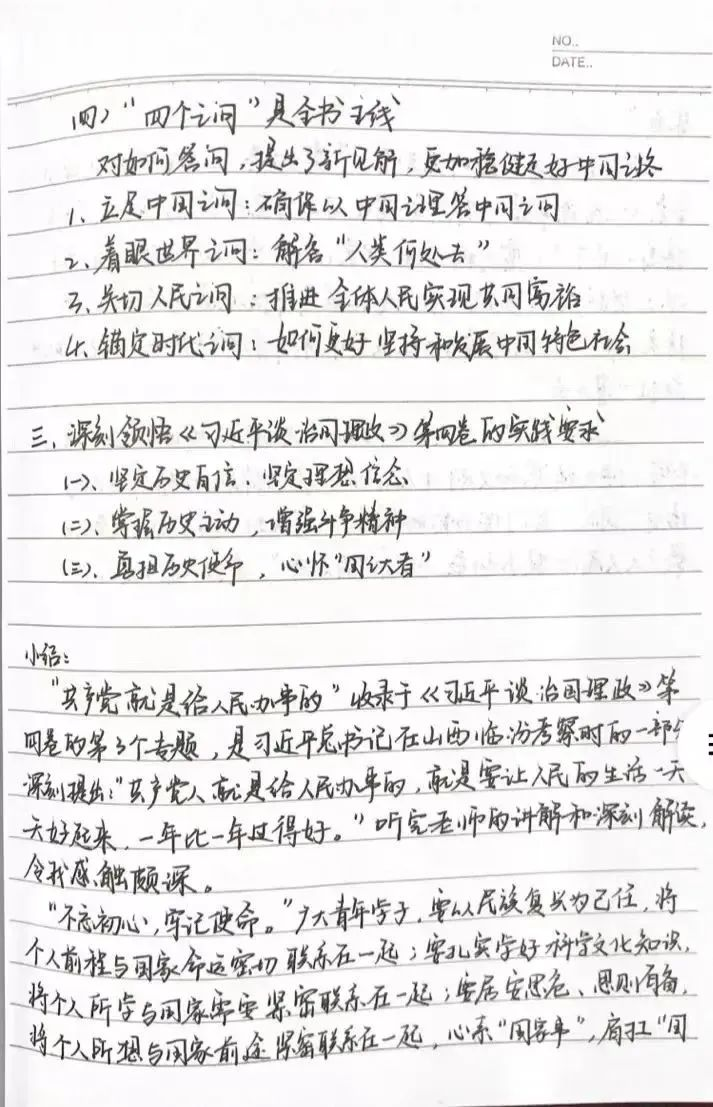 NO..
DATE..
四）“四个之问”是全书主线
对如何答问，提出了新见解，更加稳健走好中国之路
1、立足中国之问：确保以中国之理答中国之问
2、着眼世界之问：解答“人类何处去”
3、关切人民之问：推进全体人民实现共同富裕
4、锚定时代之问：如何更好坚持和发展中国特色社会
三、深刻领悟《习近平谈治国理政》第四卷的实践要求
(一)、坚定历史自信、坚定理想信念
(二)、掌握历史主动，增强斗争精神
(三)、肩担历史使命，心怀“国之大者”
小结：
“共产党就是给人民办事的”收录于《习近平谈治国理政》第
四卷的第3个专题，是习近平总书记在山西临汾考察时的一部分
深刻提出：“共产党人就是给人民办事的，就是要让人民的生活一天
天好起来，一年比一年过得好。”听完老师的讲解和深刻解读，
令我感触颇深。
“不忘初心，牢记使命。”广大青年学子，要以民族复兴为己任，将
个人前程与国家命运密切联系在一起；要扎实学好科学文化知识，
将个人所学与国家需要紧密联系在一起；要居安思危、思则有备，
将个人所想与国家前途紧密联系在一起，心系“国家事”，肩扛“国